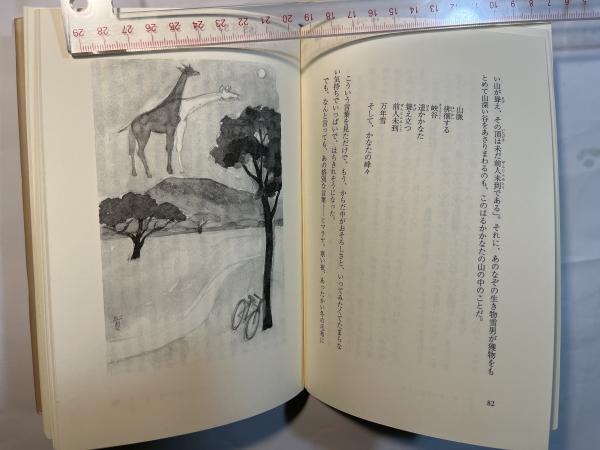 い山が聳え、その頂は未だ前人未到である』。それに、あのなぞの生き物雪男が獲物をも
とめて山深い谷をあさりまわるのも、このはるかかなたの山の中のことだ。
山脈
徘徊する
峡谷
遥かかなた
聳え立つ
前人未到
万年雪
そして、かなたの峰々
こういう言葉を見ただけで、もう、からだ中がおそろしさと、いってみたくてたまらな
い気持ちでいっぱいで、はちきれそうになった。
でも、なんと言っても、あの格別な言葉――ヒマラヤ。寒い夜、あったかい冬の毛布に
82
29 28 27 26 25 24 23 22 21 20 19 18 17 16 15 14 13 12 11 10 9 8 7 6 5